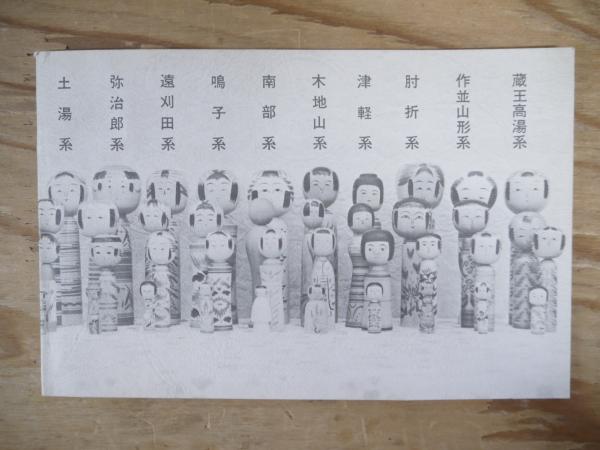 蔵王高湯系
作並山形系
肘折系
津軽系
木地山系
南部系
鳴子系
遠刈田系
弥治郎系
土湯系